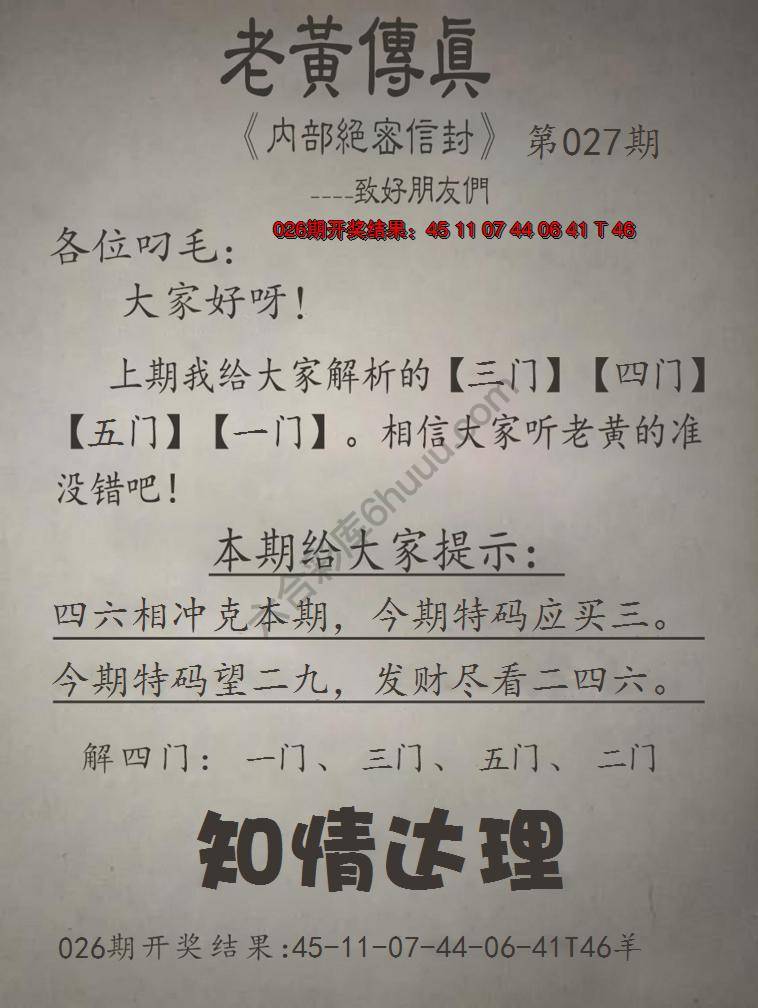 老黃傳真
《内部絕密信封》 第027期
----致好朋友們
026期开奖结果：45 11 07 44 06 41 T 46
各位叼毛：
大家好呀！
上期我给大家解析的【三门】【四门】
【五门】【一门】。相信大家听老黄的准
没错吧！
六合彩库6huuu.com
本期给大家提示：
四六相冲克本期，今期特码应买三。
今期特码望二九，发财尽看二四六。
解四门：一门、三门、五门、二门
知情达理
026期开奖结果:45-11-07-44-06-41T46羊